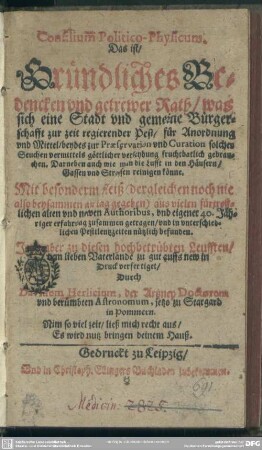 Consilium Politico-Physicum,
Das ist/
Gründliches Be-
dencken vnd getrewer Rath/ was
sich eine Stadt vnd gemeine Bürger-
schafft zur zeit regierender Pest/ für Anordnung
vnd Mittel/ beydes zur Præservation vnd Curation solcher
Seuchen vermittels göttlicher verleyhung fruchtbarlich gebrau-
chen, Darneben auch wie man die Lufft in den Häusern/
Gassen vnd Strassen reinigen könne.
Mit besonderm fleiß dergleichen noch nie
also beysammen gegeben/ aus vielen fürtreff-
lichen alten vnd newen Authoribus, vnd eigener 40. Jäh-
riger erfahrung zusammen getragen/ vnd in vnterschied-
lichen Pestilentzzeiten nützlich befunden.
Jetzo aber zu diesen hochbetrübten Leufften/
dem lieben Vaterlande zu gut auffs new in
Druck verfertiget/
Durch
Davidem Herlicium, der Artzney Doctorem
vnd berühmten Astronomum, jetzo zu Stargard
in Pommern.
Nim so viel zeit/ ließ mich recht aus/
Es wird nutz bringen deinem Hauß.
Gedruckt zu Leipzig/
Vnd in Christoff. Buchladen zubekommen.
Medicin: 2825.
691.
SLUB
DFG